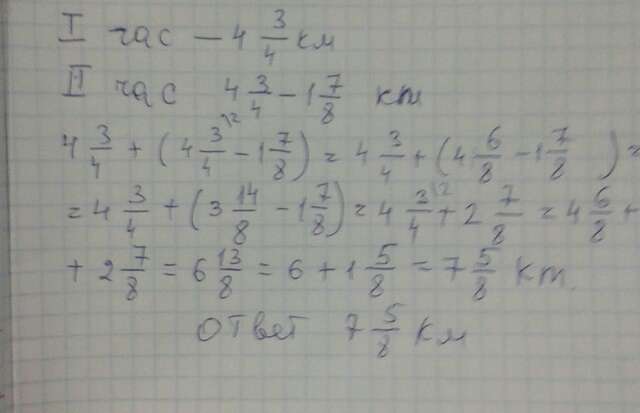 I час — 4 3/4 км
II час 4 3/4 - 1 7/8 км
4 3/4 + (4 3/4 \2 - 1 7/8) = 4 3/4 + (4 6/8 - 1 7/8) =
= 4 3/4 + (3 14/8 - 1 7/8) = 4 3/4 \2 + 2 7/8 = 4 6/8 +
+ 2 7/8 = 6 13/8 = 6 + 1 5/8 = 7 5/8 км.
ответ 7 5/8 км